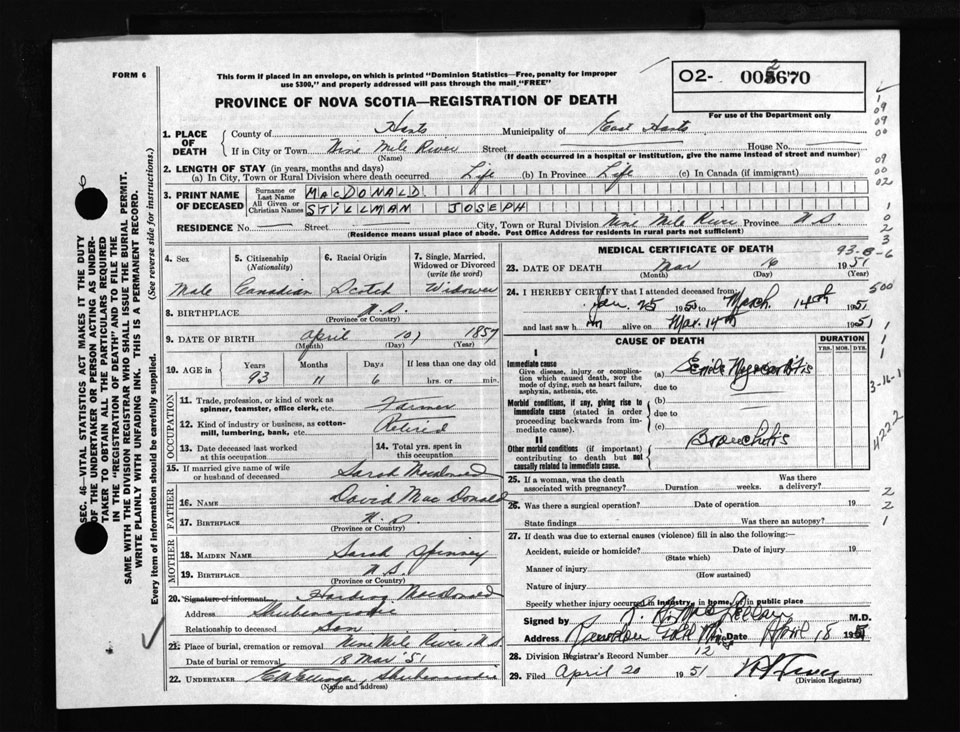 FORM 6
This form if placed in an envelope, on which is printed "Dominion Statistics—Free, penalty for improper
use $300," and properly addressed will pass through the mail "FREE"
O2- 005670
2
For use of the Department only
PROVINCE OF NOVA SCOTIA—REGISTRATION OF DEATH
1. PLACE OF DEATH
County of Hants Municipality of East Hants
If in City or Town Nine Mile River Street House No.
(Name) (If death occurred in a hospital or institution, give the name instead of street and number)
2. LENGTH OF STAY (in years, months and days)
(a) In City, Town or Rural Division where death occurred Life (b) In Province Life (c) In Canada (if immigrant)
3. PRINT NAME OF DECEASED
Surname or Last Name MACDONALD
All Given or Christian Names STILLMAN JOSEPH
RESIDENCE No. Street City, Town or Rural Division Nine Mile River Province N.S.
(Residence means usual place of abode. Post Office Address for residents in rural parts not sufficient)
4. Sex Male
5. Citizenship (Nationality) Canadian
6. Racial Origin Scotch
7. Single, Married, Widowed or Divorced (write the word) Widower
8. BIRTHPLACE N.S.
(Province or Country)
9. DATE OF BIRTH April 10 1857
(Month) (Day) (Year)
10. AGE in Years 93 Months 11 Days 6 If less than one day old hrs. or min.
OCCUPATION
11. Trade, profession, or kind of work as spinner, teamster, office clerk, etc. Farmer
12. Kind of industry or business, as cotton-mill, lumbering, bank, etc. Retired
13. Date deceased last worked at this occupation
14. Total yrs. spent in this occupation
15. If married give name of wife or husband of deceased Sarah Macdonald
FATHER
16. NAME David MacDonald
17. BIRTHPLACE N.S.
(Province or Country)
MOTHER
18. MAIDEN NAME Sarah Spinney
19. BIRTHPLACE N.S.
(Province or Country)
20. Signature of informant Harding Macdonald
Address Shubenacadie
Relationship to deceased Son
21. Place of burial, cremation or removal Nine Mile River, N.S.
Date of burial or removal 18 Mar '51
22. UNDERTAKER Shubenacadie
(Name and address)
MEDICAL CERTIFICATE OF DEATH
93-8-6
23. DATE OF DEATH Mar 16 1951
(Month) (Day) (Year)
24. I HEREBY CERTIFY that I attended deceased from:
Jan. 25 1950 to March 14th 1951
and last saw h im alive on Mar. 14th 1951
CAUSE OF DEATH
DURATION
YRS. MOS. DYS.
I
Immediate cause
Give disease, injury or complication which caused death, NOT the mode of dying, such as heart failure, asphyxia, asthenia, etc.
(a) Senile Myocarditis
due to
Morbid conditions, if any, giving rise to immediate cause (stated in order proceeding backwards from immediate cause).
(b)
due to
(c)
II
Other morbid conditions (if important) contributing to death but not causally related to immediate cause.
Bronchitis
25. If a woman, was the death associated with pregnancy? Duration weeks. Was there a delivery?
26. Was there a surgical operation? Date of operation 19
State findings Was there an autopsy?
27. If death was due to external causes (violence) fill in also the following:—
Accident, suicide or homicide? Date of injury 19
(State which)
Manner of injury
(How sustained)
Nature of injury
Specify whether injury occurred in industry, in home, or in public place
Signed by M.D.
Address Date April 18 1951
28. Division Registrar's Record Number 12
29. Filed April 20 1951
(Division Registrar)
1
09
09
00
09
00
02
1
0
2
3
500
1
1
1
3-16-1
422-2
2
2
1
SEC. 46—VITAL STATISTICS ACT MAKES IT THE DUTY
OF THE UNDERTAKER OR PERSON ACTING AS UNDER-
TAKER TO OBTAIN ALL THE PARTICULARS REQUIRED
IN THE "REGISTRATION OF DEATH" AND TO FILE THE
SAME WITH THE DIVISION REGISTRAR WHO SHALL ISSUE THE BURIAL PERMIT.
WRITE PLAINLY WITH UNFADING INK. THIS IS A PERMANENT RECORD.
Every item of information should be carefully supplied. (See reverse side for instructions.)